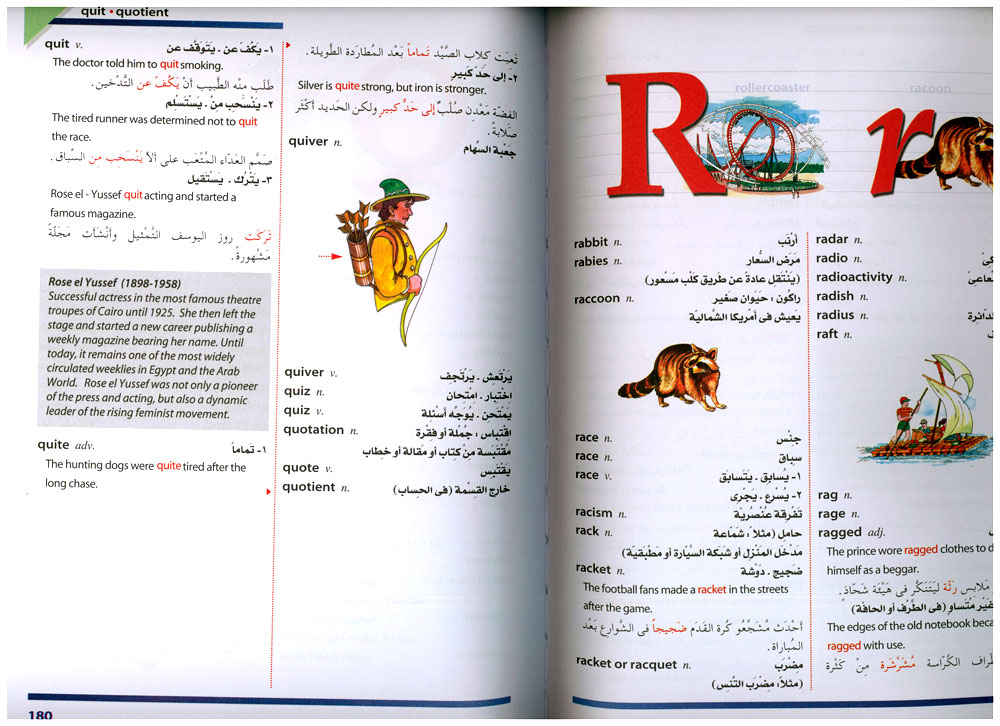 quit • quotient
quit v. ١- يَكُفّ عن . يَتَوقَّف عن
The doctor told him to quit smoking.
طَلَب منْه الطَّبيب أنْ يَكُفّ عن التَّدْخين.
٢- يَنْسَّحب من . يَسْتَسْلِم
The tired runner was determined not to quit
the race.
صَمَّم العَدّاء المُتْعَب على ألاّ يَنْسَحب من السِّباق .
٣- يَتْرُك . يَسْتَقيل
Rose el - Yussef quit acting and started a
famous magazine.
تَرَكَت روز اليوسف التَّمْثيل وأنْشَأت مَجَلّة
مَشْهورة.
Rose el Yussef (1898-1958)
Successful actress in the most famous theatre
troupes of Cairo until 1925. She then left the
stage and started a new career publishing a
weekly magazine bearing her name. Until
today, it remains one of the most widely
circulated weeklies in Egypt and the Arab
World. Rose el Yussef was not only a pioneer
of the press and acting, but also a dynamic
leader of the rising feminist movement.
quite adv. ١- تماماً
The hunting dogs were quite tired after the
long chase.
تَعِبَت كلاب الصَّيْد تَماماً بَعْد المُطارَدة الطَّويلة.
٢- إلى حَدّ كَبير
Silver is quite strong, but iron is stronger.
الفِضّة مَعْدِن صُلْب إلى حَدٍّ كبيرٍ ولكن الحَديد أكْثَر
صَلابة.
quiver n. جَعْبة السِّهام
quiver v. يَرْتَعش . يَرْتَجف
quiz n. اخْتِبار . امْتِحان
quiz v. يَمْتَحن . يُوَجِّه أسْئلة
quotation n. اقْتِباس : جُمْلة أو فِقْرة
مُقْتَبَسة من كِتاب أو مَقالة أو خِطاب
quote v. يَقْتَبِس
quotient n. خارِج القِسْمة (فى الحِساب)
180
rollercoaster racoon
R r
rabbit n. أرْنَب
rabies n. مَرَض السُّعار
(يَنْتَقل عادةً عن طريق كَلْب مَسعور)
raccoon n. راكُون : حيوان صَغير
يَعيش فى أمْريكا الشَّماليّة
race n. جِنْس
race n. سِباق
race v. ١- يُسابِق . يَتَسابَق
٢- يُسْرِع . يَجْرى
racism n. تَفْرقة عُنْصُريّة
rack n. حامِل (مثلاً: شَمّاعة
مَدخَل المَنْزِل أو شَبَكة السَّيّارة أو مِطْبَقيّة)
racket n. ضَجيج . دَوْشة
The football fans made a racket in the streets
after the game.
أحْدَث مُشَجِّعُو كُرة القَدَم ضَجيجاً فى الشَّوارِع بَعْدَ
المُباراة.
racket or racquet n. مِضْرَب
(مثلاً: مِضْرَب التِّنس)
radar n.
radio n.
radioactivity n.
radish n.
radius n. الدّائِرة
raft n.
rag n.
rage n.
ragged adj.
The prince wore ragged clothes to d
himself as a beggar.
مَلابِس رَثّة ليَتَنَكَّر فى هَيْئة شَحّاذ.
غَيْر مُتَساوٍ (فى الطَّرْف أو الحافة)
The edges of the old notebook beca
ragged with use.
الكُرّاسة مُشَرْشَرة مِنْ كَثْرة